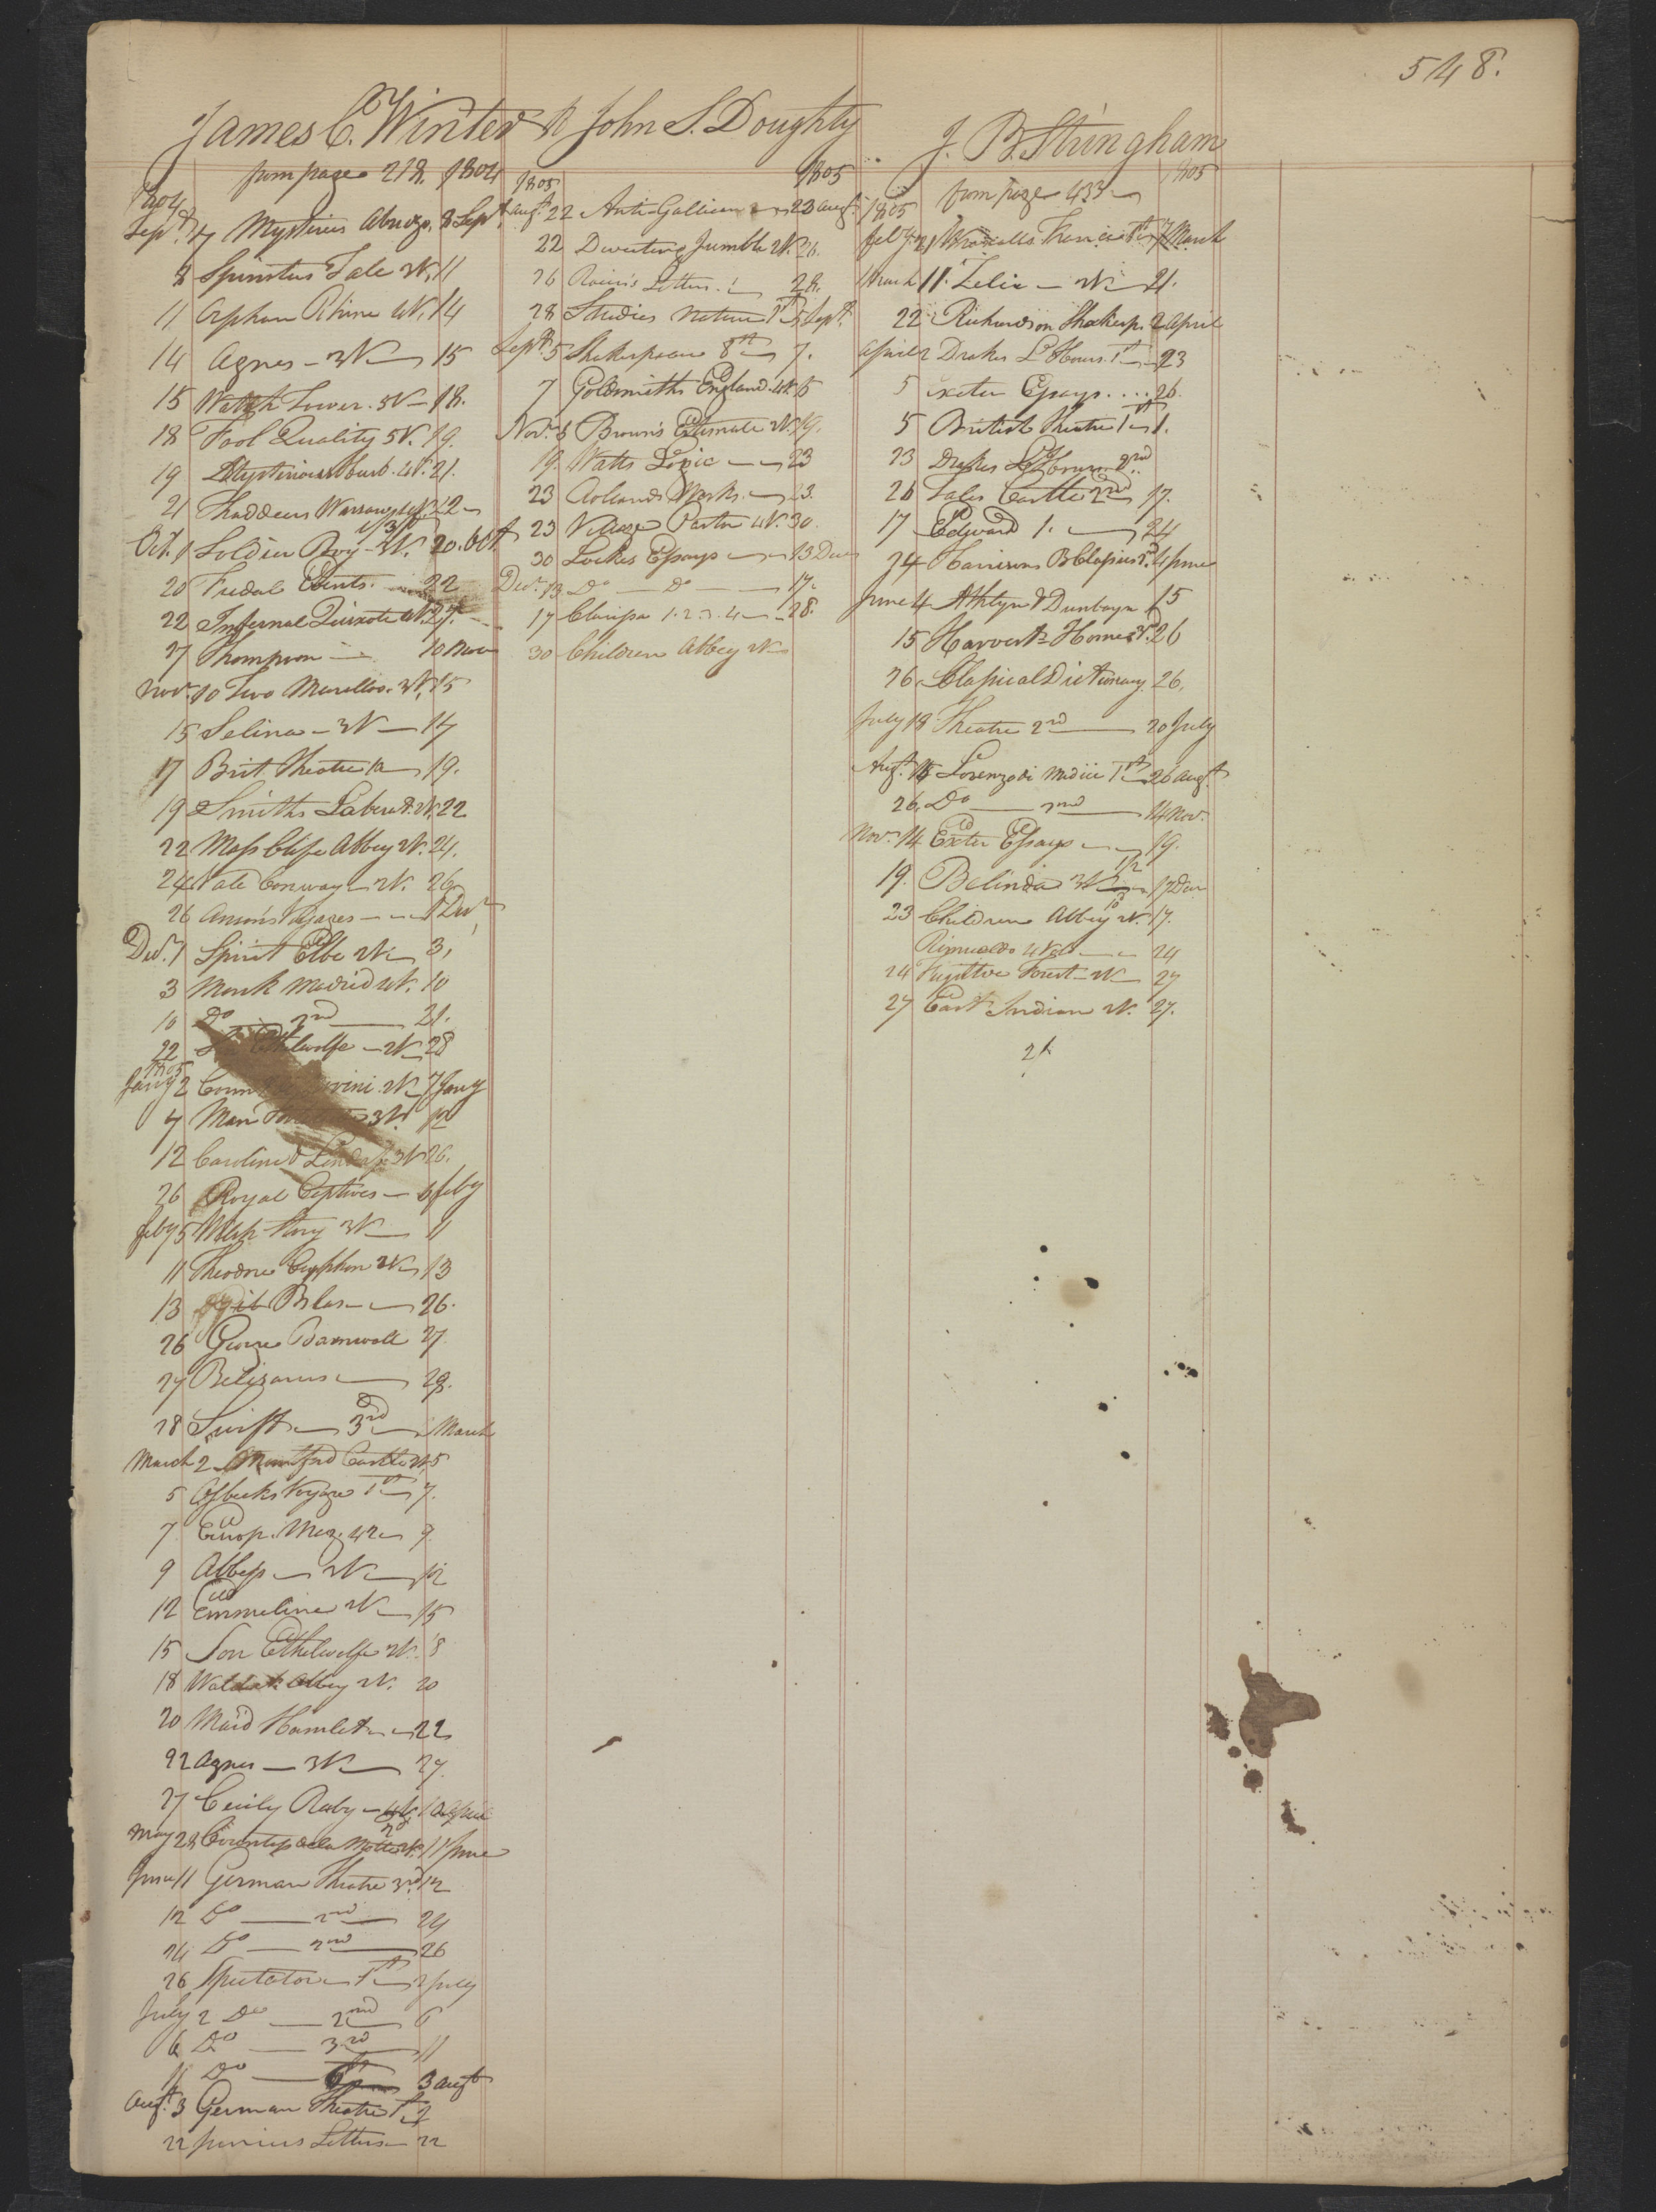 548.
James C. Winter & John S. Doughty
from page 218. 1804
1804
Sept. 7 Mysterious 8 Sept.
8 Spinsters Tale 3V. 11
11 Orphan Rhine 4V. 14
14 Agnes - 3V - 15
15 Watch Tower. 5V - 18.
18 Fool Quality 5V. 19.
19 Mysterious 4V. 21.
21 Thaddeus Warsaw 4V. 22
Oct. 1 Soldier Boy - 3V. 20. Oct
20 Feudal Events. 22
22 Infernal Quixote 4V. 27.
27 Thompson - 10 Nov
Nov. 10 Two Marillos. 3V. 15
15 Selina - 3V - 17
17 Brit Theatre 10 19.
19 Smiths Laborat. 2V. 22
22 Moss Cliff Abbey 2V. 24.
24 Vale Conway - 2V. 26
26 Ansons Voyages - 1 Decr
Decr. 1 Spirit Elbe 2V - 3,
3 Monk Madrid 4V. 10
10 Do 2nd 21.
22 Ethelwolfe - 2V - 28
1805
Jany 2 Count 2V. 7 Jany
7 Man 3V. 12
12 Caroline Lindsay 3V 26.
26 Royal Captives - 5 feby
feby 5 Welsh Story 3V - 11
11 Theodore Cyphon 2V - 13
13 Gil Blas - 26.
26 George Barnwell 27.
27 Belizarius - 28.
28 Swift - 3rd March
March 2 Mountford Castle 2V. 5
5 Osbecks Voyage 1st 7.
7 Europ. Mag. 42 9
9 Abbess - 2V - 12
12 Emmeline 2V - 15
15 Son Ethelwolfe 2V. 18
18 Abbey 2V. 20
20 Maid Hamlet - 22
22 Agnes - 3V - 27.
27 Cecily Raby - 4V. 1 April
May 28 Countess de la Motte 2V. 11 June
June 11 German Theatre 3rd 12
12 Do 2nd 24
24 Do 2nd 26
26 Spectator - 1st - 2 July
July 2 Do 2nd 6
6 Do 3rd 11
11 Do 3 augt
augt. 3 German Theatre 1st
22 Junius Letters - 22
1805 1805
augt. 22 Anti-Gallican - 23 augt.
22 Diverting Jumble 2V. 26.
26 Letters. 28.
28 Studies Nature 1st 5 Sept.
Sept. 5 Shakespeare 8th 7.
7 Goldsmiths England 4V. 5
Nov. 5 Browns Estimate 2V. 19.
19. Watts Logic - 23
23 Works. 23.
23 Village Pastor 4V. 30.
30 Lockes Essays - 13 Decr
Decr. 13 Do - Do 17.
17 Clarissa 1.2.3.4 - 28.
30 Children Abbey 2V
J. B. Stringham
from page 433 1805
1805
feby. 21 Wraxalls France 1st 7 March
March 11. Zelia - 2V - 21.
22 Richardson Shakesp. 2 April
April 2 Drakes L Hours 1st - 23
5 Exeter Essays .... 26.
5 British Theatre 1 - 1.
23 Drakes L Hours 2nd
26 Tales Castle 2nd 17.
17 Edward 1. - 24
24 Harrisons B Classics 2d 4 June
June 4 Athlyn & Dunbayn 15
15 Harvest Home 3V. 26
26 Classical Dictionary 26.
July 18 Theatre 2nd 20 July
Augt. 15 Lorenzo di Medici 1st 26 augt.
26. Do 2nd 14 Nov.
Nov. 14 Exeter Essays - 19.
19. Belinda 3V 17 Decr
23 Children Abbey 2V. 17.
Rimualdo 4 Vol - 24
24 Fugitive Forest - 2V - 27
27 East Indian 2V. 27.